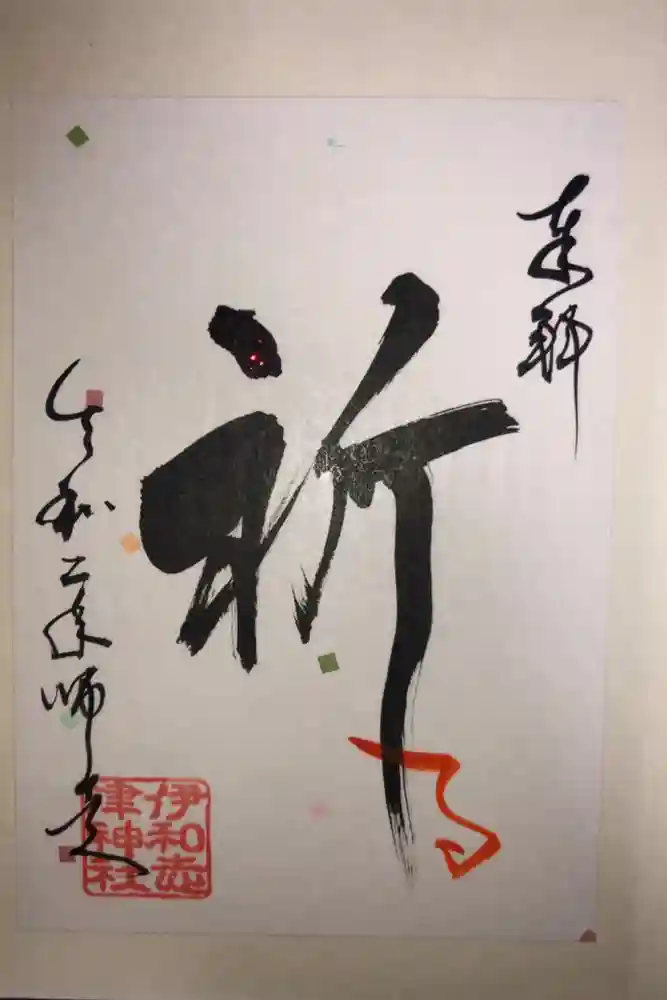 奉拝
祈る
令和二年師走
伊和志
津神社